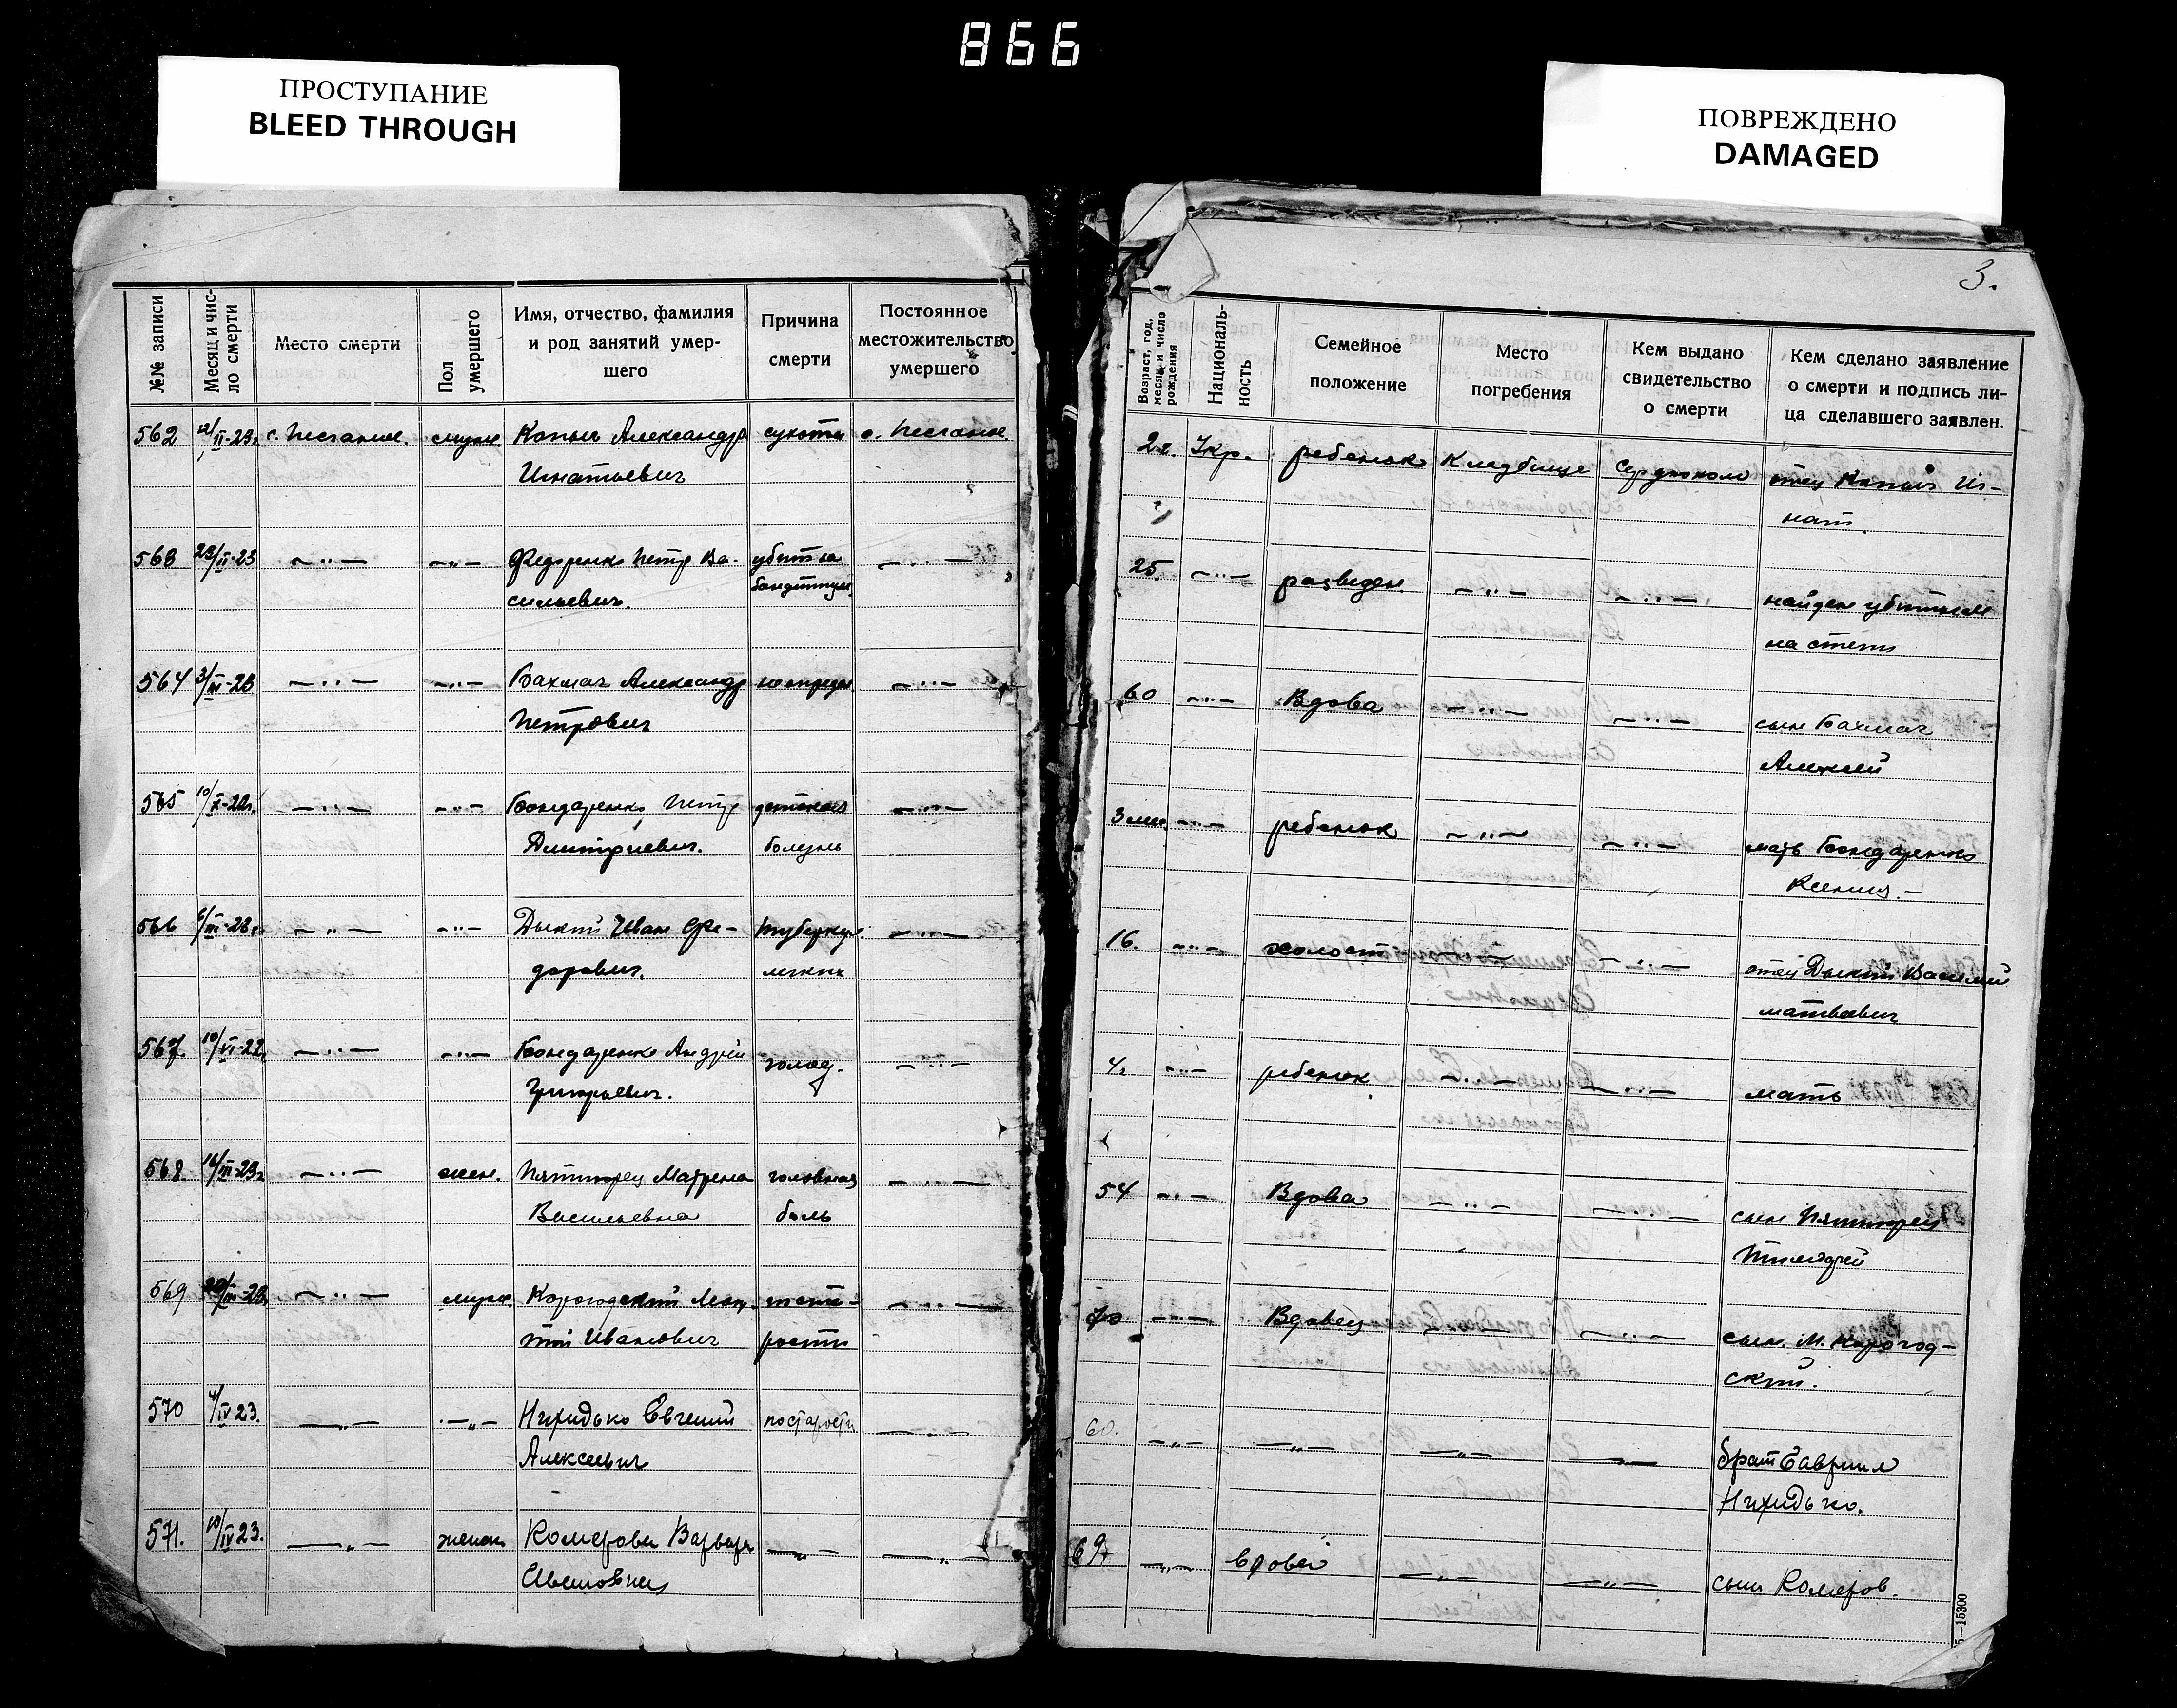 866
ПРОСТУПАНИЕ
BLEED THROUGH
ПОВРЕЖДЕНО
DAMAGED
3.
№№ записи
Месяц и чис-
ло смерти
Место смерти
Пол
умершего
Имя, отчество, фамилия
и род занятий умер-
шего
Причина
смерти
Постоянное
местожительство
умершего
Возраст, год,
месяц и число
рождения
Националь-
ность
Семейное
положение
Место
погребения
Кем выдано
свидетельство
о смерти
Кем сделано заявление
о смерти и подпись ли-
ца сделавшего заявлен.
562 12/II-23. с. Песчаное. муж. Александр сухоты с. Песчаное. Укр. ребенок Кладбище отец
Игнатьевич нат.
563 23/II-23 —„— —„— Федоренко Петр Ва- убит —„— 25. —„— разведен. —„— —„— найден убитым
сильевич. на степи
564 3/III-23 —„— —„— Бахмач Александр —„— 60 —„— Вдова —„— —„— сын Бахмач
Петрович Алексей
565 10/X-22г. —„— —„— Бондаренко Петр детская —„— 3 мес. —„— ребенок —„— —„— мать Бондаренко
Дмитриевич. болезнь Ксения —
566 6/III-23г. —„— —„— Дыкий Иван Фе- туберкул. —„— 16. —„— холост —„— —„— отец Дыкий Василий
дорович. легких матвеевич
567. 10/VI-22. —„— —„— Бондаренко Андрей голод. —„— —„— ребенок —„— —„— мать
Григорьевич.
568. 16/III-23г —„— жен. Пятигорец Матрена головная —„— 54 —„— Вдова —„— —„— сын Пятигорец
Васильевна боль Тимофей
569 20/III-23. —„— муж. Корогодский —„— 70 —„— Вдовец —„— —„— сын. М. Корогод-
Иванович рости ский.
570 4/IV 23. —„— —„— Евгений по старости —„— 60. —„— —„— —„— —„— брат Гавриил
Алексеевич
571. 10/IV 23. —„— женск Комерова Варвара —„— —„— 69 —„— —„— —„— сын Комеров.
Ивановна
5—15300